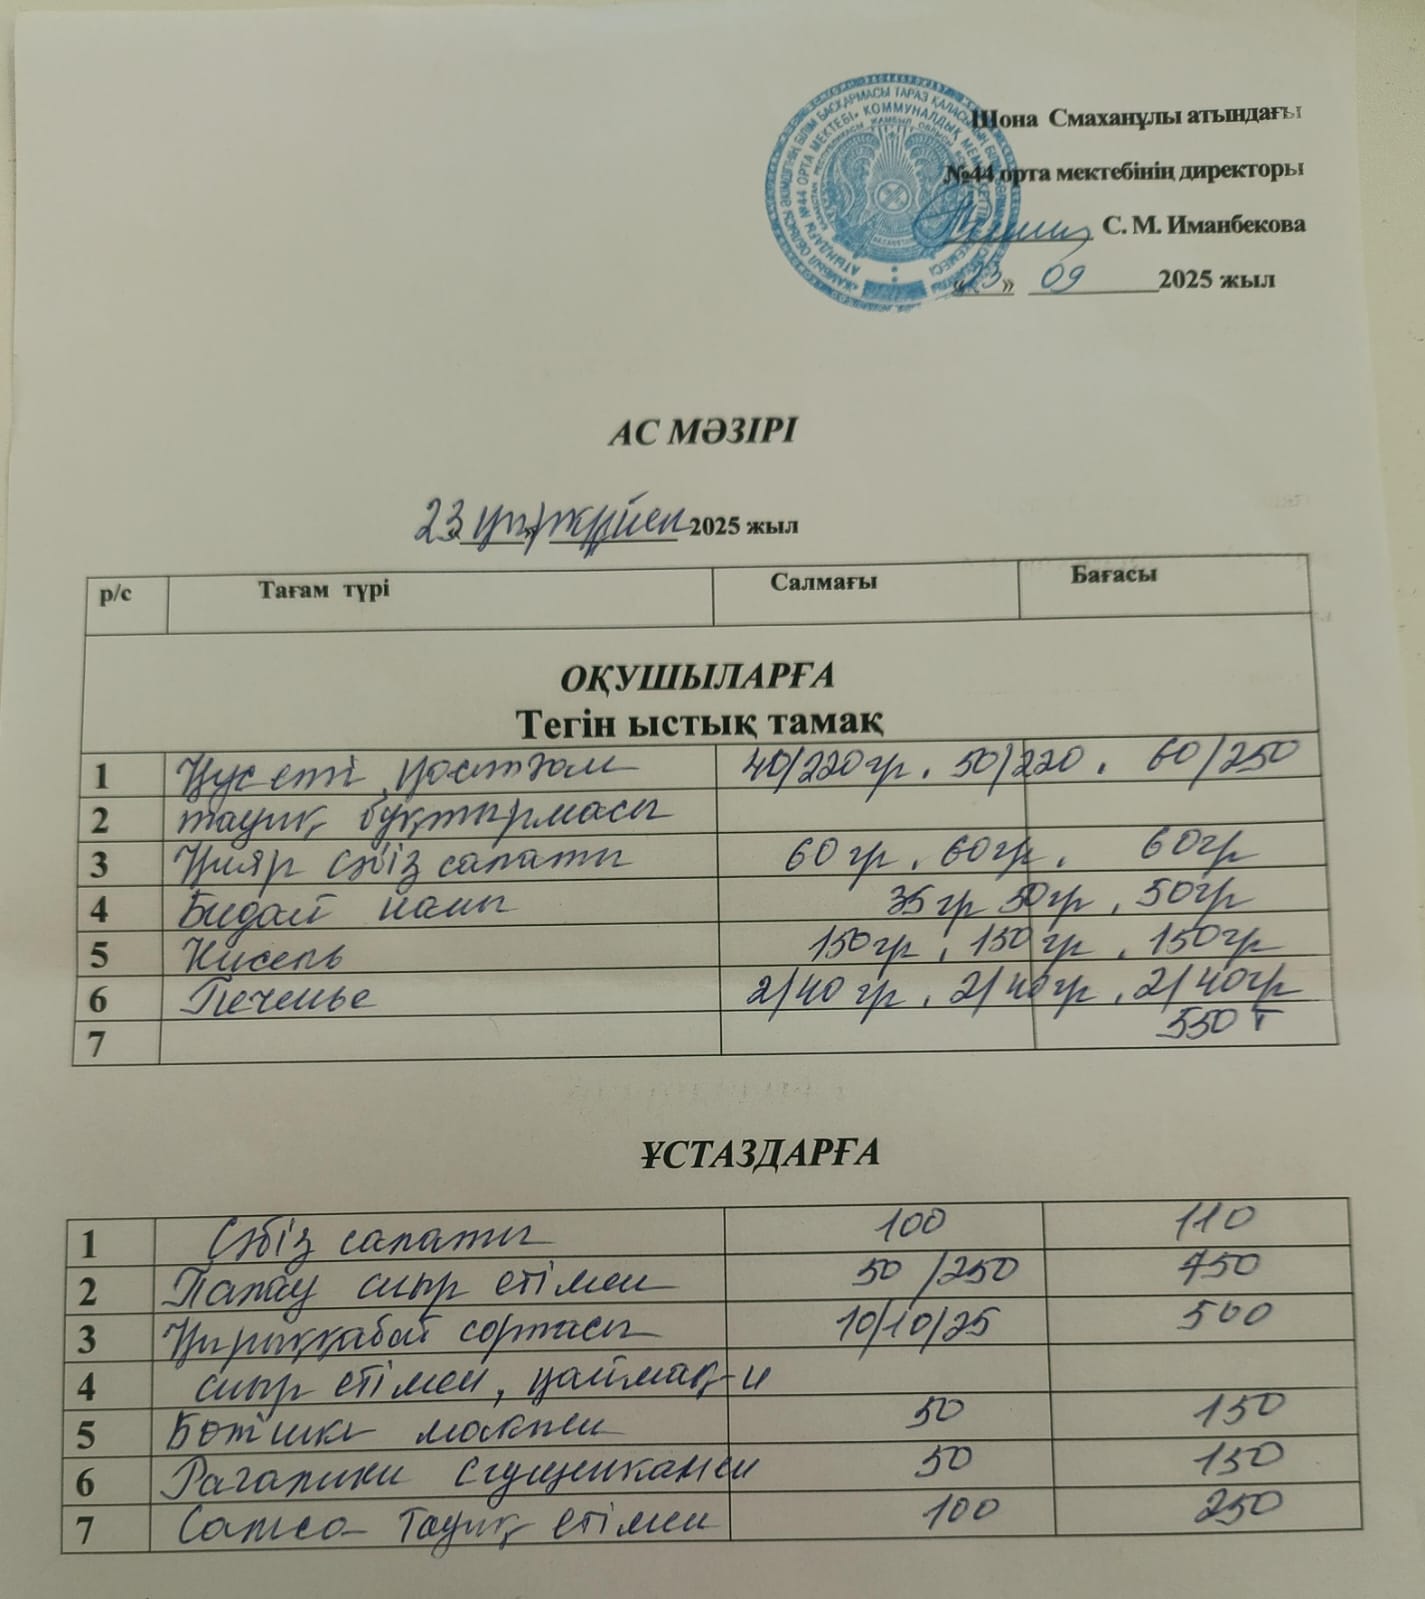 Шона Смаханұлы атындағы
№44 орта мектебінің директоры
С. М. Иманбекова
«23» 09 2025 жыл
АС МӘЗІРІ
23 қыркүйек 2025 жыл
р/с Тағам түрі Салмағы Бағасы
ОҚУШЫЛАРҒА
Тегін ыстық тамақ
1 Құс еті қосылған 40/220гр. 50/220. 60/250
2 тауық бұқтырмасы
3 Қияр сәбіз салаты 60гр. 60гр. 60гр
4 Бидай наны 35гр 50гр. 50гр
5 Кисель 150гр. 150гр. 150гр
6 Печенье 2/40гр. 2/40гр. 2/40гр
7 550 т
ҰСТАЗДАРҒА
1 Сәбіз салаты 100 110
2 Палау сиыр етімен 50/250 750
3 Қырыққабат сорпасы 10/10/25 500
4 сиыр етімен, қаймақ-н
5 50 150
6 Рагалики сгущенкамен 50 150
7 Самса тауық етімен 100 250